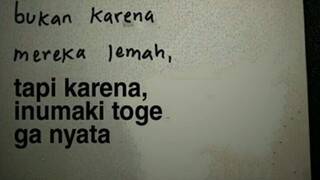 bukan karena
mereka lemah,
tapi karena,
inumaki toge
ga nyata